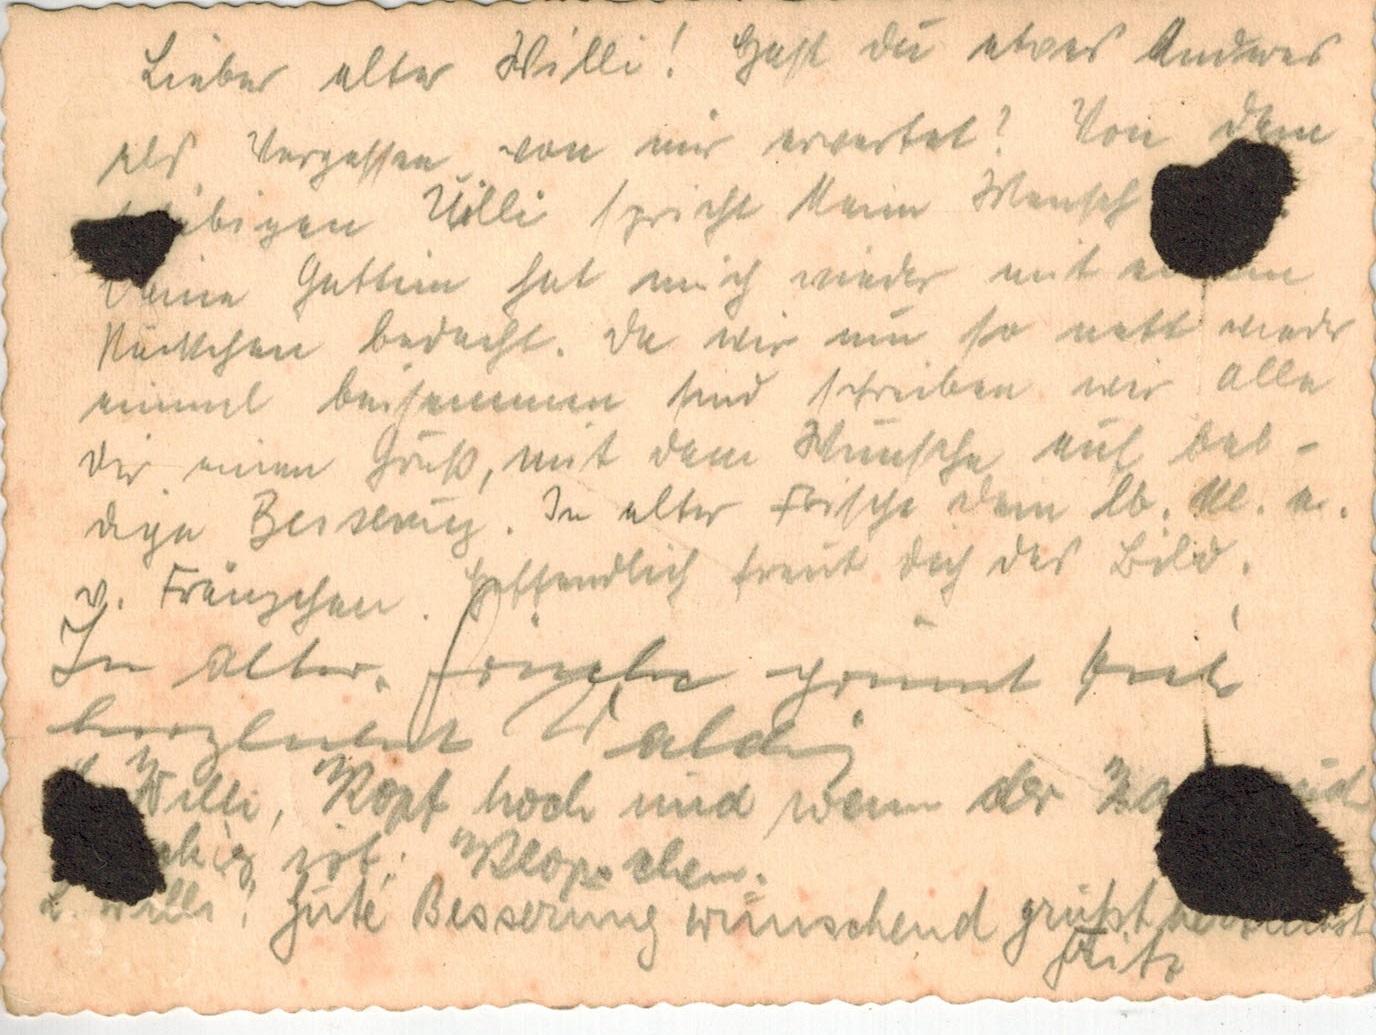 Lieber alter Willi! Hast du etwas Anderes
als Vergessen von mir erwartet? Von dem
Willi spricht kein Mensch
Deine Gattin hat mich wieder mit
bedacht. Da wir nun so nett wieder
einmal beisammen sind schreiben wir alle
dir einen Gruß, mit dem Wunsche auf bal-
dige Besserung. In alter Frische dein lb.
v. Fränzchen. Hoffendlich freut dich das Bild.
In alter Frische grüsst dich
herzlichst Waldi
Willi, Kopf hoch und wenn der
ist. Klopschen.
L. Willi! Gute Besserung wünschend grüßt herzlichst
Fritz